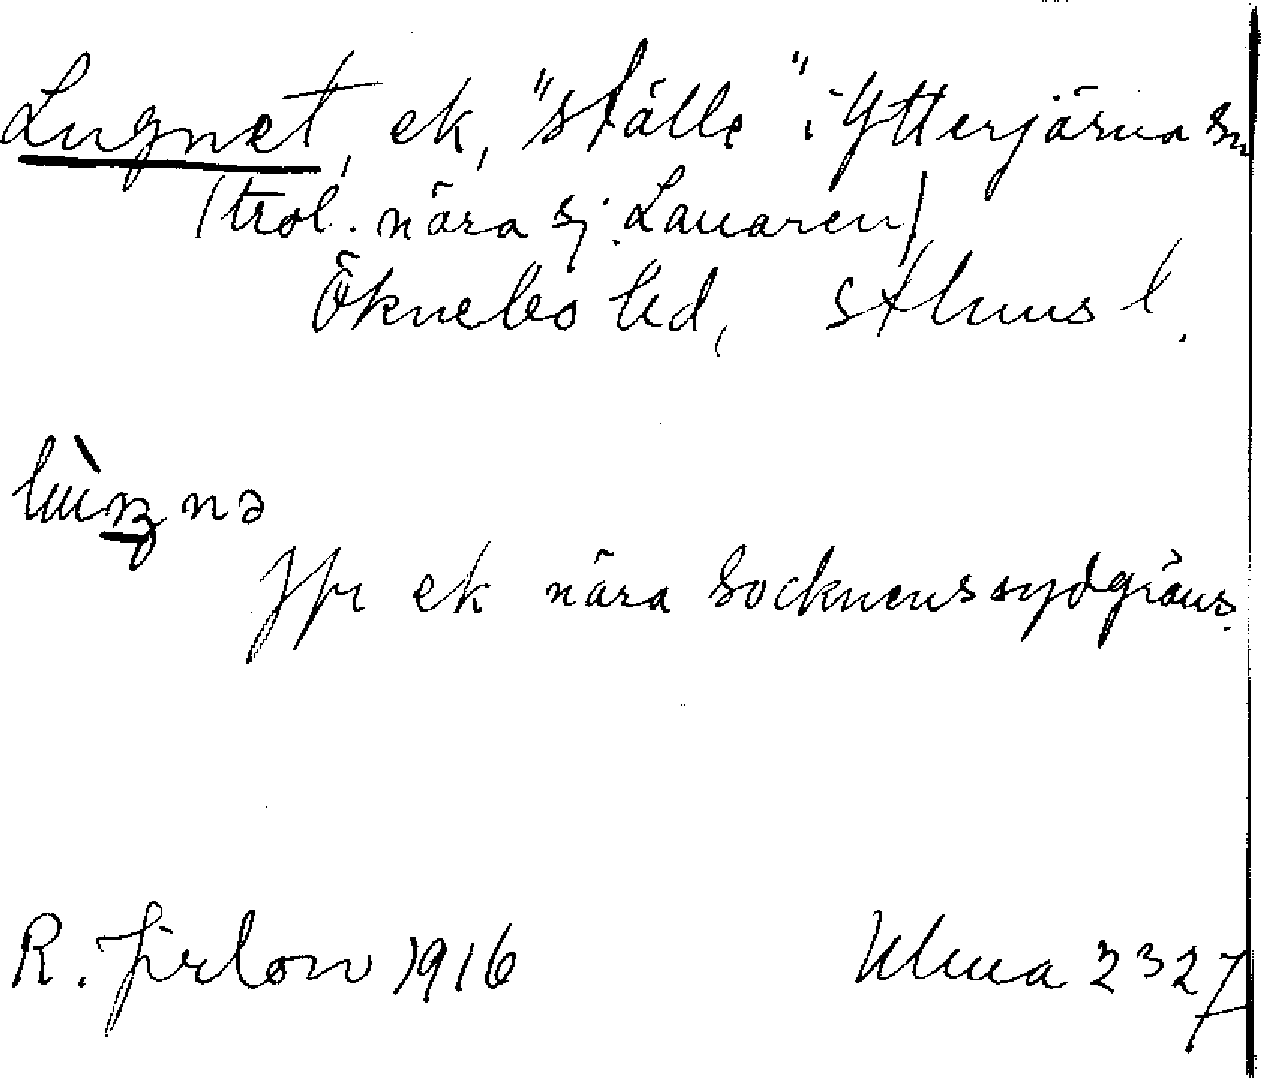 Lugnet, ek, "ställe" i Ytterjärna sn
(trol. nära sj. Lanaren)
Öknebo hd, Sthlms l.
Jfr ek nära socknens sydgräns.
R. Jirlow 1916 Ulma 2327